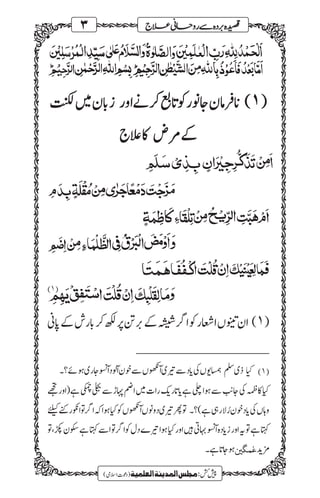 قصیدہ بردہ سے روحانی علاج
۳
اَلْحَمْدُ لِلّٰہِ رَبِّ الْعٰلَمِیْنَ وَالصَّلٰوۃُ وَالسَّلَامُ عَلٰی سَیِّدِ الْمُرْسَلِیْنَ
اَمَّا بَعْدُ فَاَعُوْذُ بِاللّٰہِ مِنَ الشَّیْطٰنِ الرَّجِیْمِ بِسْمِ اللّٰہِ الرَّحْمٰنِ الرَّحِیْمِ
(۱) نافرمان جانور کو تابع کرنے اور زبان میں لکنت
کے مرض کا علاج
اَمِنْ تَذَکُّرِ جِیْرَانٍ بِذِیْ سَلَمٖ
مَزَجْتَ دَمْعًا جَرٰی مِنْ مُّقْلَةٍ بِدَمٖ
اَمْ هَبَّتِ الرِّیْحُ مِنْ تِلْقَاءِ کَاظِمَةٍ
وَاَوْمَضَ الْبَرْقُ فِی الظَّلْمَاءِ مِنْ اِضَمٖ
فَمَا لِعَیْنَیْکَ اِنْ قُلْتَ اکْفُفَا هَمَتَا
وَمَا لِقَلْبِکَ اِنْ قُلْتَ اسْتَفِقْ یَهِمٖ (۱)
(۱) ان تینوں اشعار کو اگر شیشہ کے برتن پر لکھ کر بارش کے پانی
(۱) کیا ذی سلم کے ہمسایوں کی یاد سے تیری آنکھوں سے خون آلود آنسو جاری ہوئے؟۔
کیا کاظمہ کی جانب سے ہوا چلی ہے یا تاریک رات میں اضم پہاڑ سے بجلی چمکی ہے (اور تجھے
وہاں کی یاد خون رلا رہی ہے)؟۔ پھر تو تیری دونوں آنکھوں کو کیا ہوا کہ اگر تو انکو رکنے کیلئے
کہتا ہے تو یہ اور زیادہ آنسو بہاتی ہیں اور کیا ہوا تیرے دل کو اگر تو اسے کہتا ہے سکون پکڑ، تو
مزید غمگین ہو جاتا ہے۔
پیش کش: مجلس المدینۃ العلمیۃ (دعوتِ اسلامی)